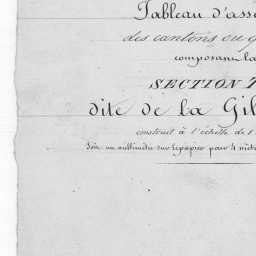 Tableau d'ass
des cantons ou
composant la
SECTION
dite de la Gil
construit à l'échelle de 1
Soit un millimètre sur le papier pour 4 mètr